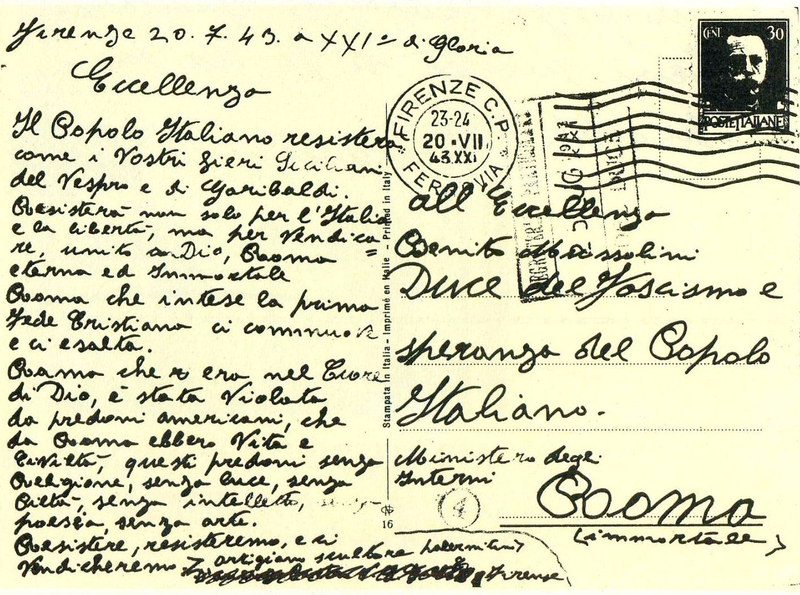 Firenze 20.7.43. a XXIº di Gloria
Eccellenza
Il Popolo Italiano resisterà
come i Vostri fieri Siciliani
del Vespro e di Garibaldi.
Resisterà non solo per l'Italia
e la libertà, ma per vendica=
re, unito a Dio, Rooma
eterna ed Immortale
Rooma che intese la prima
Fede Cristiana ci commuove
e ci esalta.
Rooma che è ora nel Cuore
di Dio, è stata Violata
da predoni americani, che
da Rooma ebbero Vita e
Civiltà, questi predoni senza
Religione, senza luce, senza
Pietà, senza intelletto,
poesia, senza arte.
Resistere, resisteremo, e ci
Vendicheremo artigiano scultore
Firenze
Stampata in Italia - Imprimé en Italie - Printed in Italy
16
CENT 30
POSTE ITALIANE
FIRENZE C.P.
23-24
20·VII
43.XXI
FERROVIA
all'Eccellenza
Benito Mussolini
Duce del Fascismo e
speranza del Popolo
Italiano.
Ministero degli
Interni
4
Rooma
(immortale)